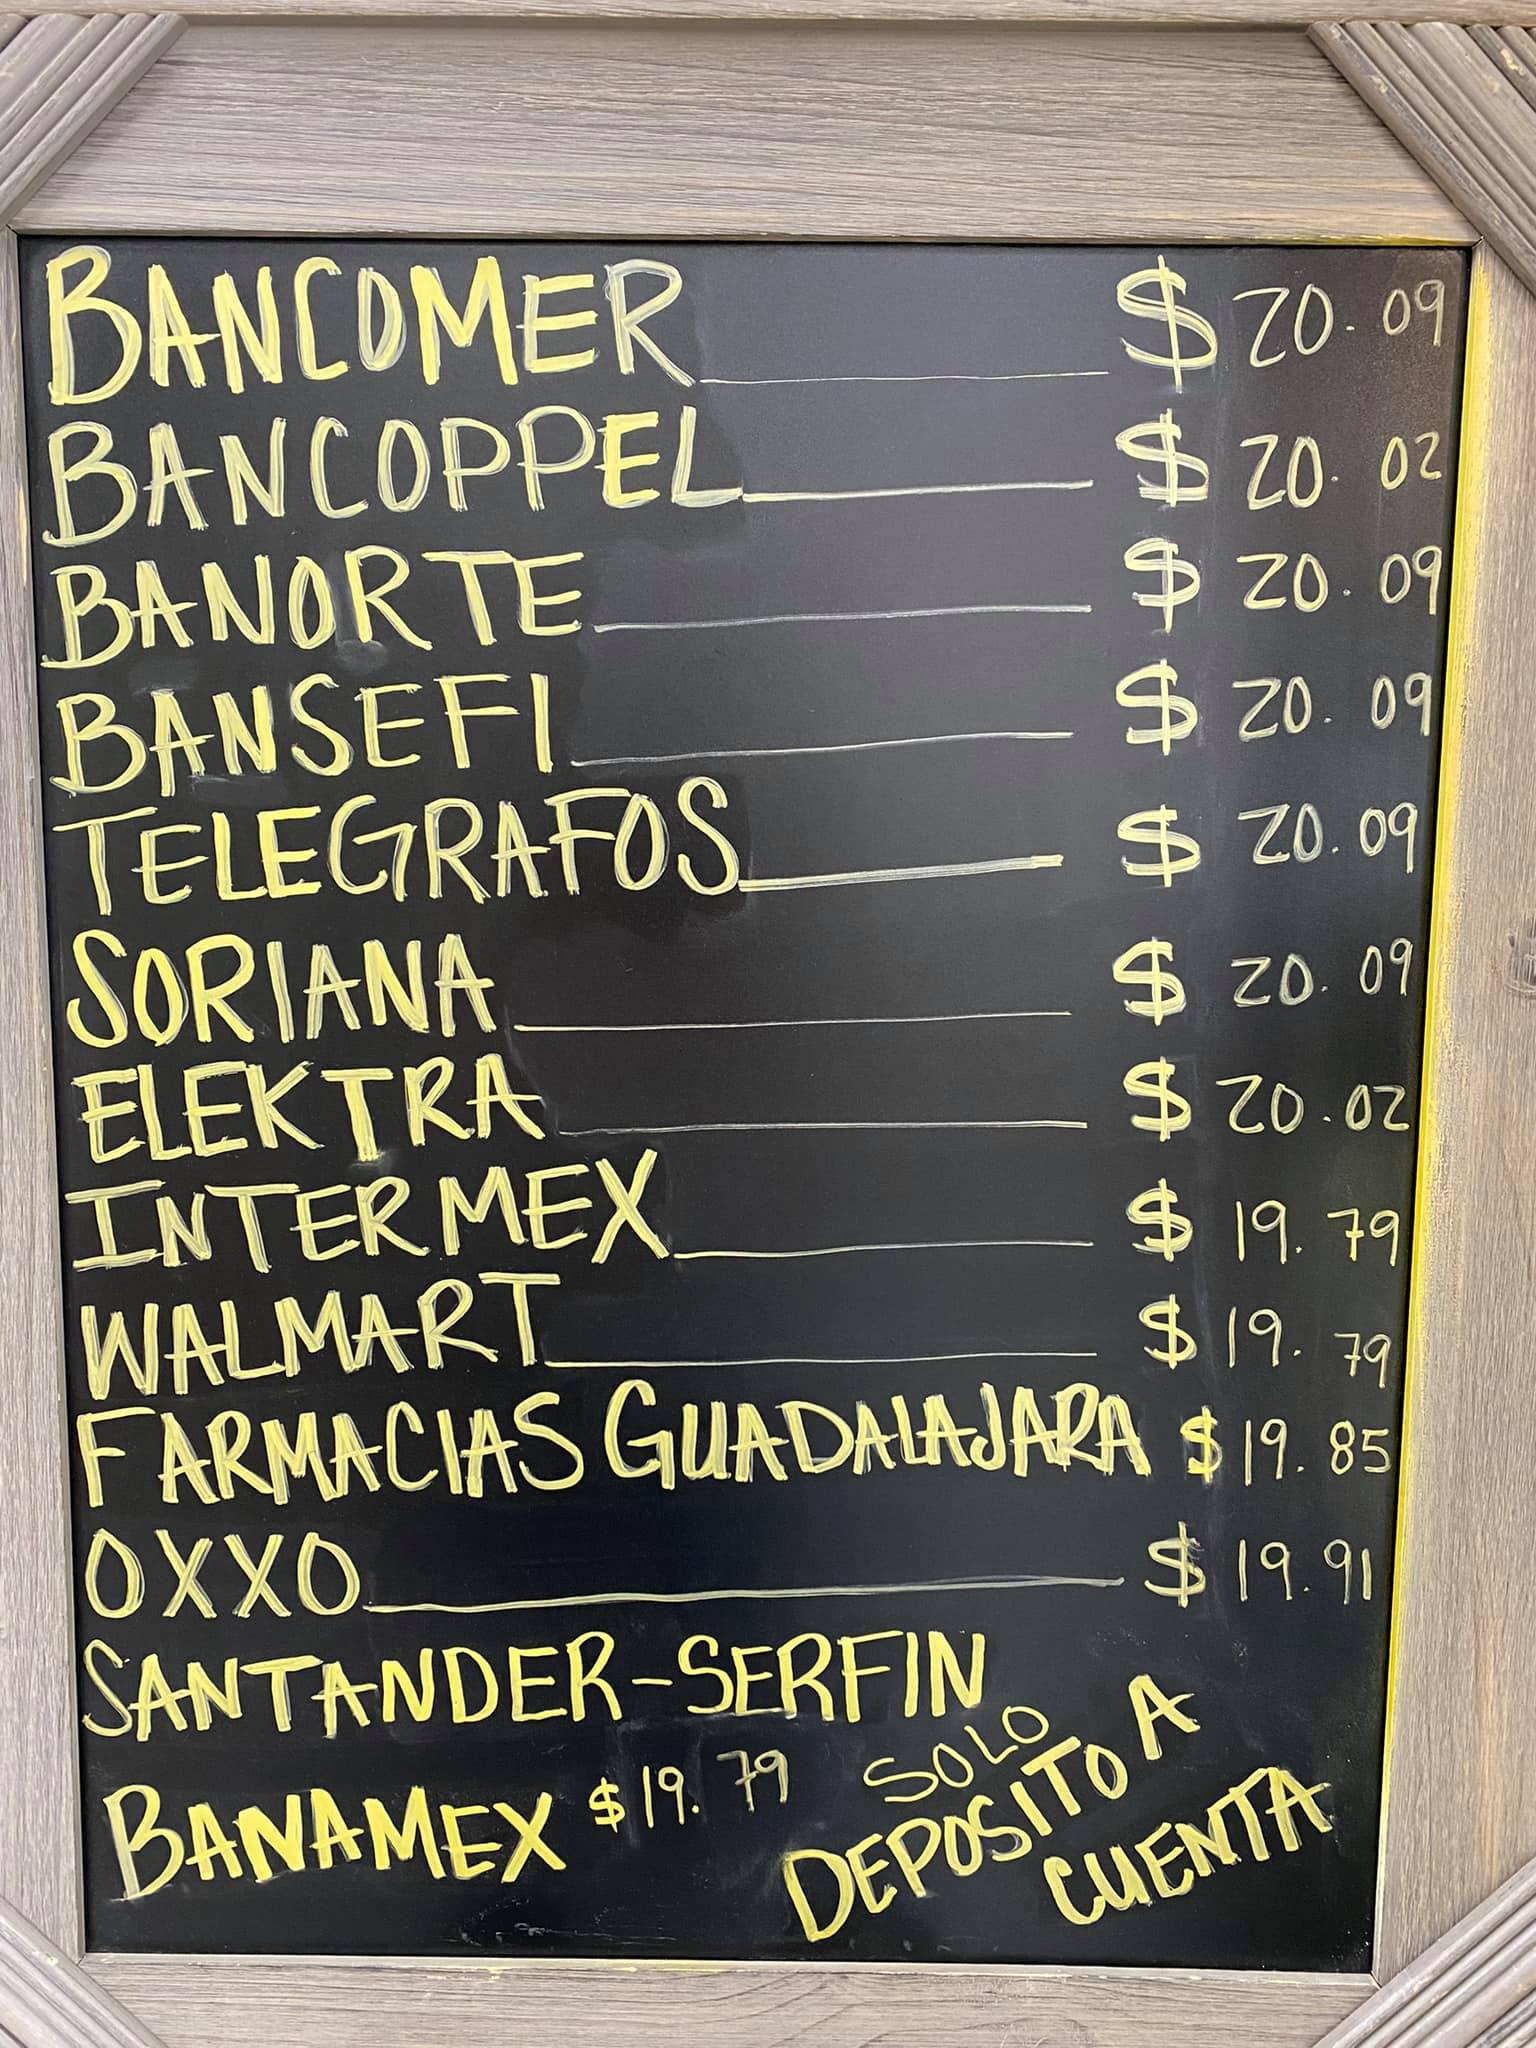 BANCOMER $ 20.09
BANCOPPEL $ 20.02
BANORTE $ 20.09
BANSEFI $ 20.09
TELEGRAFOS $ 20.09
SORIANA $ 20.09
ELEKTRA $ 20.02
INTERMEX $ 19.79
WALMART $ 19.79
FARMACIAS GUADALAJARA $ 19.85
OXXO $ 19.91
SANTANDER-SERFIN
BANAMEX $ 19.79
SOLO
DEPOSITO A
CUENTA